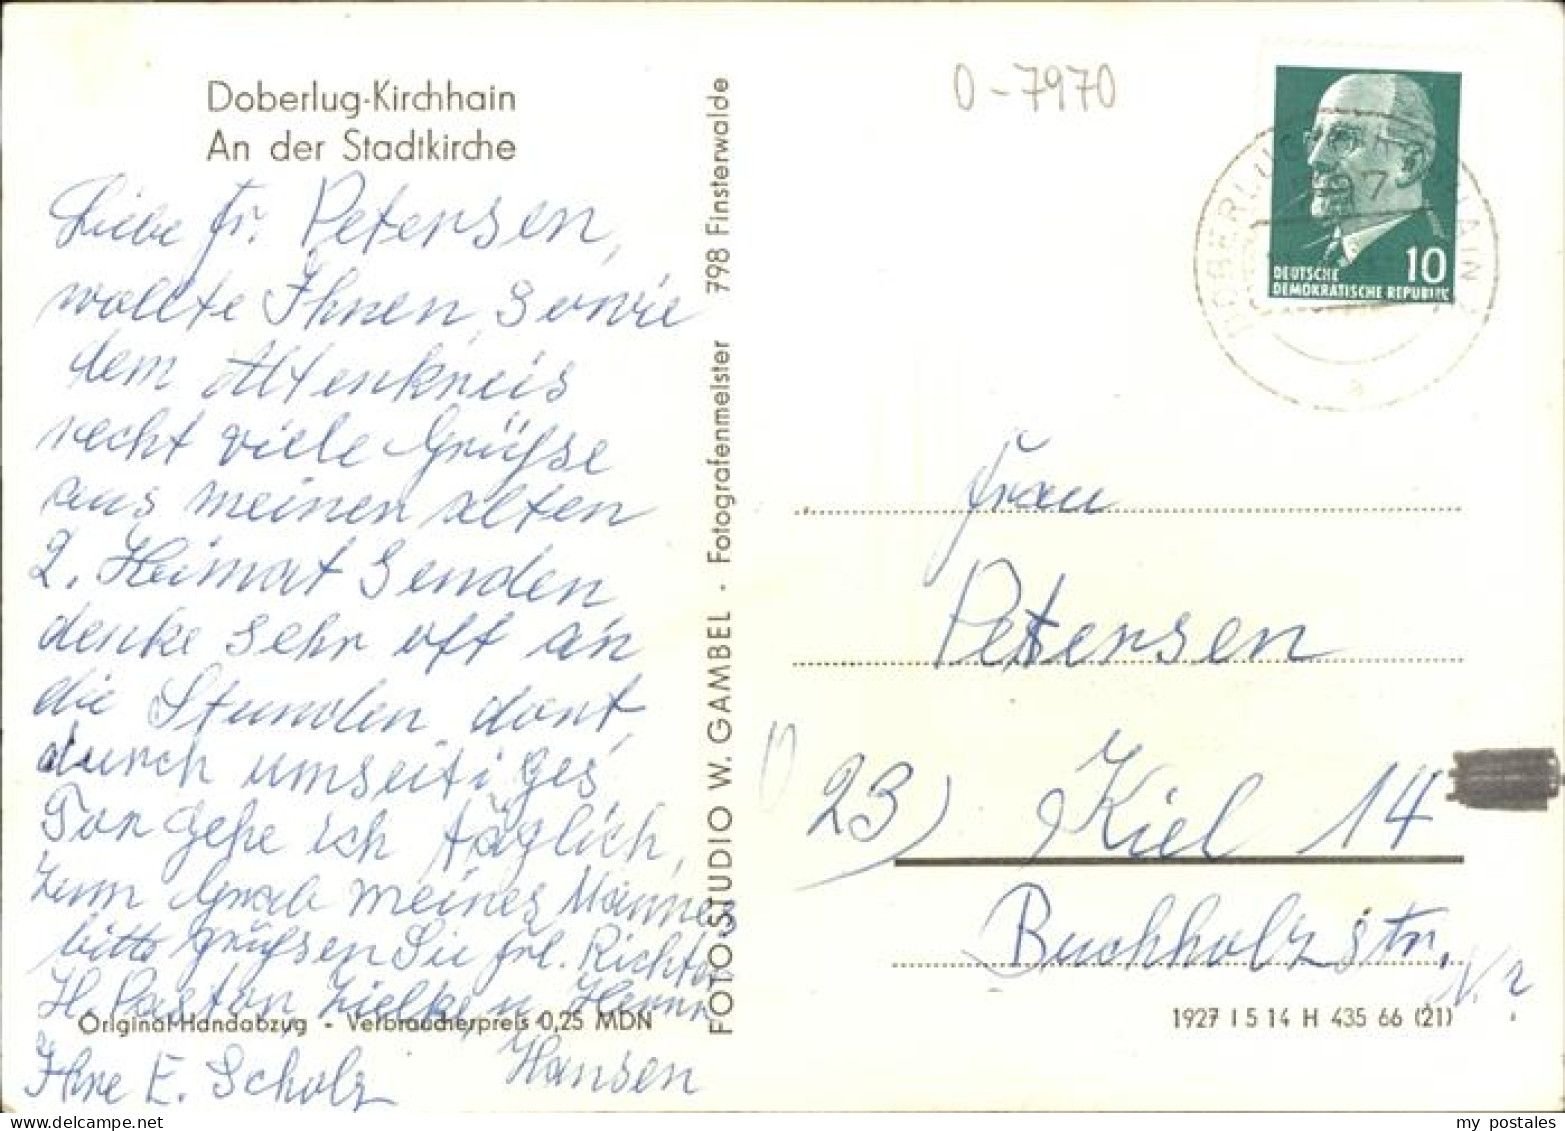 Doberlug-Kirchhain
An der Stadtkirche
Liebe Fr. Petersen,
wollte Ihnen, sowie
dem Altenkreis
recht viele Grüße
aus meiner alten
2. Heimat senden
denke sehr oft an
die Stunden dort,
durch umseitiges
Tor gehe ich täglich,
zum Grab meines Mannes
bitte grüßen Sie Frl. Richter
H. Pastor Zielke u. Herrn
Hansen
Ihre E. Scholz
Original-Handabzug • Verbraucherpreis 0,25 MDN
FOTO-STUDIO W. GAMBEL • Fotografenmeister 798 Finsterwalde
O-7970
DOBERLUG-KIRCHHAIN
a
10
DEUTSCHE
DEMOKRATISCHE REPUBLIK
Frau
Petersen
23) Kiel 14
Buchholzstr.
1927 I 5 14 H 435 66 (21)
my postales